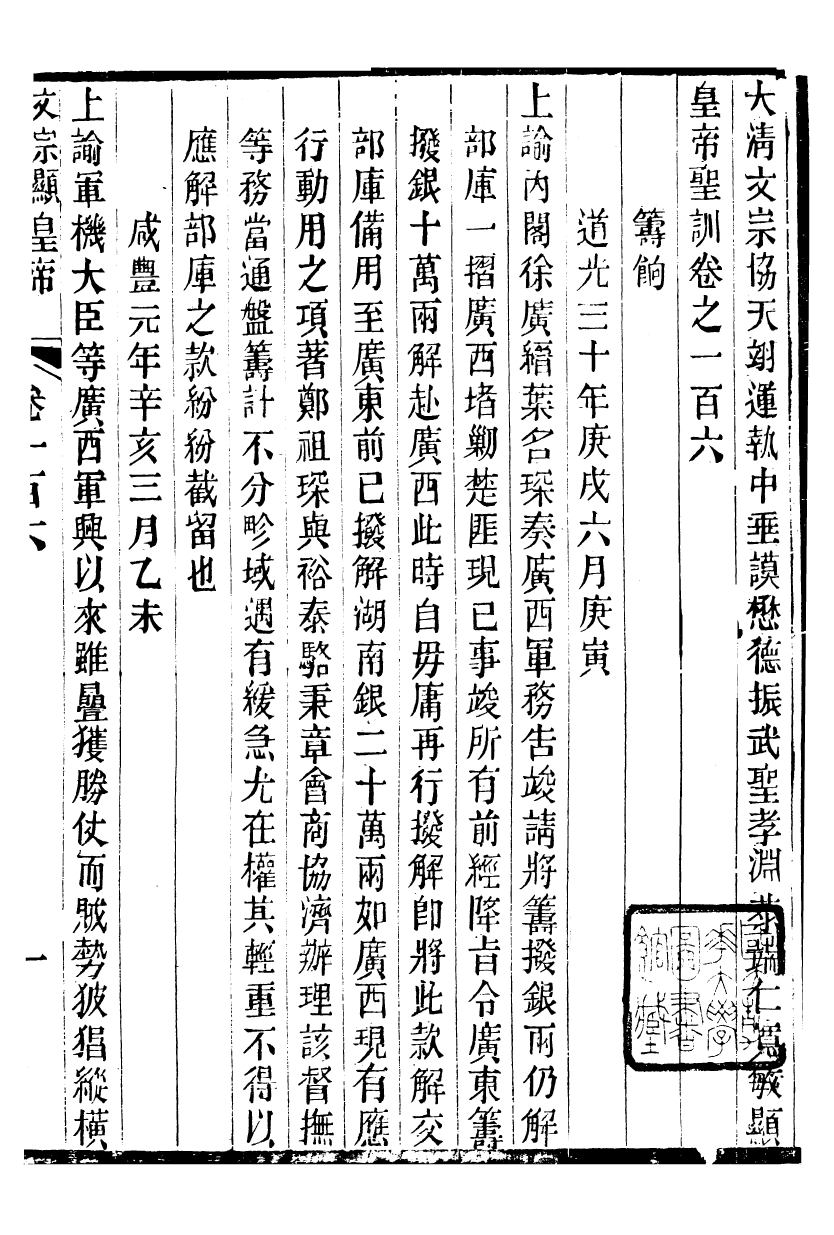 大清文宗協天翊運執中垂謨懋德振武聖孝淵恭端仁寬敏顯
皇帝聖訓卷之一百六
籌餉
道光三十年庚戌六月庚寅
上諭內閣徐廣縉葉名琛奏廣西軍務吿竣請將籌撥銀兩仍解
部庫一摺廣西堵剿楚匪現已事竣所有前經降旨令廣東籌
撥銀十萬兩解赴廣西此時自毋庸再行撥解卽將此款解交
部庫備用至廣東前已撥解湖南銀二十萬兩如廣西現有應
行動用之項著鄭祖琛與裕泰駱秉章會商協濟辦理該督撫
等務當通盤籌計不分畛域遇有緩急尤在權其輕重不得以
應解部庫之款紛紛截留也
咸豐元年辛亥三月乙未
上諭軍機大臣等廣西軍興以來雖疊獲勝仗而賊勢狓猖縱橫
文宗顯皇帝 卷一百六 一